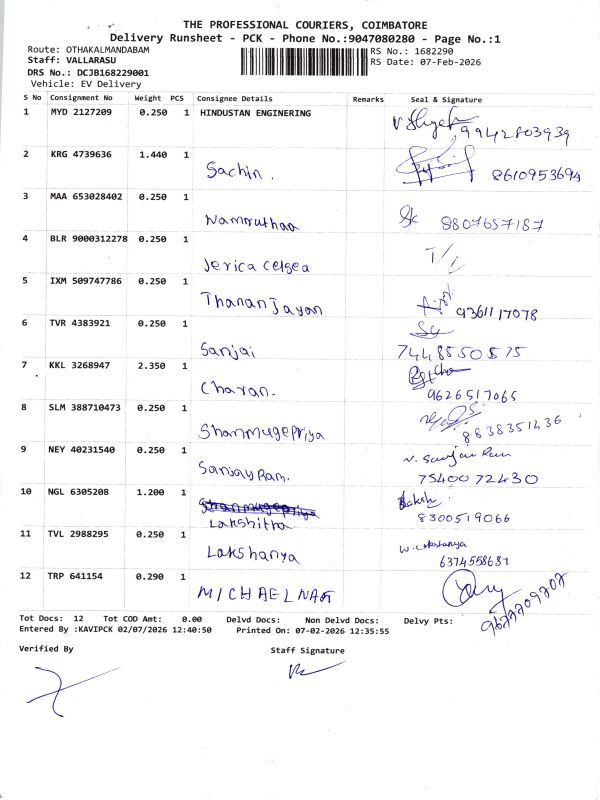 THE PROFESSIONAL COURIERS, COIMBATORE
Delivery Runsheet - PCK - Phone No.:9047080280 - Page No.:1
Route: OTHAKALMANDABAM RS No.: 1682290
Staff: VALLARASU RS Date: 07-Feb-2026
DRS No.: DCJB168229001
Vehicle: EV Delivery
S No Consignment No Weight PCS Consignee Details Remarks Seal & Signature
1 MYD 2127209 0.250 1 HINDUSTAN ENGINERING 9942803939
2 KRG 4739636 1.440 1 Sachin. 8610953694
3 MAA 653028402 0.250 1 Namruthaa 8807657187
4 BLR 9000312278 0.250 1 Jerica celsea
5 IXM 509747786 0.250 1 Thananjayan 9361117078
6 TVR 4383921 0.250 1 Sanjai 7448550575
7 KKL 3268947 2.350 1 Charan. 9626517065
8 SLM 388710473 0.250 1 Shanmugepriya 8838351436
9 NEY 40231540 0.250 1 SanjayRam. 7540072430
10 NGL 6305208 1.200 1 Shanmugepriya
Lakshitha 8300519066
11 TVL 2988295 0.250 1 Lakshanya W. Lakshanya
6374558681
12 TRP 641154 0.290 1 MICHAEL
Tot Docs: 12 Tot COD Amt: 0.00 Delvd Docs: Non Delvd Docs: Delvy Pts:
Entered By :KAVIPCK 02/07/2026 12:40:50 Printed On: 07-02-2026 12:35:55
Verified By Staff Signature